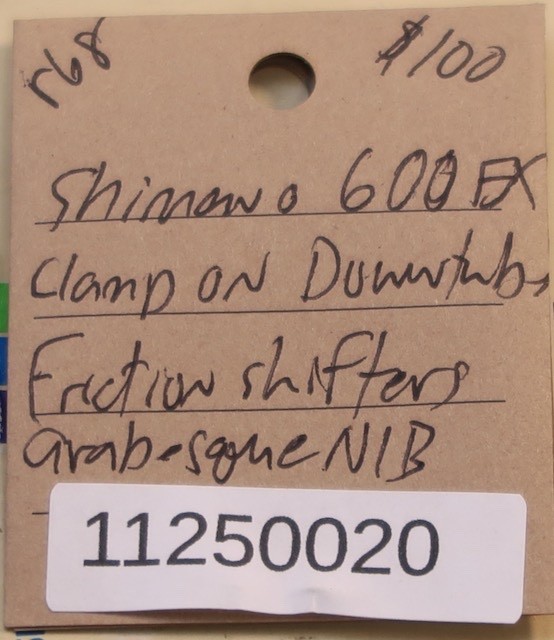 r68 $100
Shimano 600 EX
Clamp ON Downtube
Friction shifters
arabesque NIB
11250020